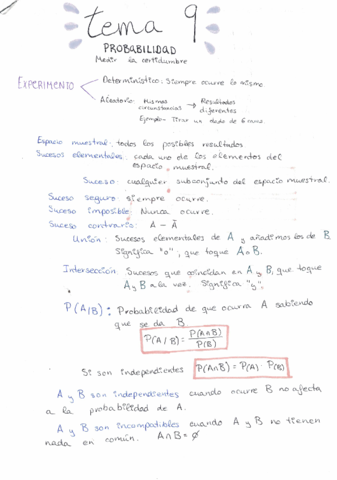 tema 9
PROBABILIDAD
Medir la certidumbre
EXPERIMENTO
Determinístico: Siempre ocurre lo mismo
Aleatorio: Mismas circunstancias → Resultados diferentes
Ejemplo- Tirar un dado de 6 caras
Espacio muestral: todos los posibles resultados
Sucesos elementales: cada uno de los elementos del
espacio muestral.
Suceso: cualquier subconjunto del espacio muestral.
Suceso seguro: siempre ocurre.
Suceso imposible: Nunca ocurre.
Suceso contrario: A - Ā
Unión: Sucesos elementales de A y añadimos los de B.
Significa "o", que toque A o B.
Intersección: Sucesos que coincidan en A y B, que toque
A y B a la vez. Significa "y".
P(A/B): Probabilidad de que ocurra A sabiendo
que se da B.
P(A/B) = P(A∩B) / P(B)
Si son independientes P(A∩B) = P(A) · P(B)
A y B son independientes cuando ocurre B no afecta
a la probabilidad de A.
A y B son incompatibles cuando A y B no tienen
nada en común. A∩B = ∅